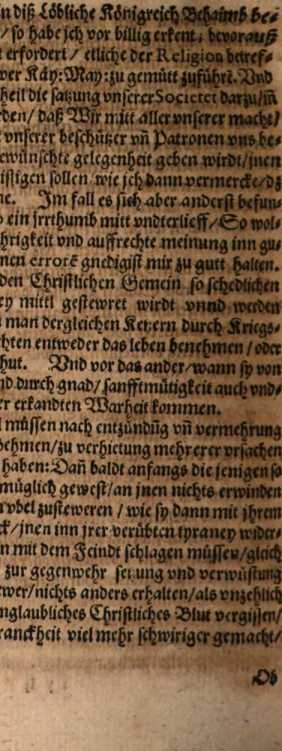 n diß Löbliche Königreich Behaimb be-
/ so habe jch vor billig erkent / bevorauß
t erfordert / etliche der Religion betref-
wer Käy: May: zu gemütt zuführē. Vnd
heil die satzung vnserer Societet darzu / m̄
den / daß Wir mitt aller vnserer macht /
t vnserer beschützer vn̄ Patronen vns be-
ewünschte gelegenheit geben wirdt / jnen
istigen sollen / wie jch dann vermercke / dz
ne. Jm fall es sich aber anderst befun-
o ein jrrthumb mitt vndterlieff / So wol-
hrigkeit vnd auffrechte meinung inn gu-
nen errorē gnedigist mir zu gutt halten.
den Christlichen Gemein so schedlichen
ey mittl gestewret wirdt vnnd werden
man dergleichen Ketzern durch Kriegs-
chten entweder das leben benehmen / oder
hut. Vnd vor das ander / wann sy von
nd durch gnad / sanfftmütigkeit auch vnd-
er erkandten Warheit kommen.
l müssen nach entzündūg vn̄ vermehrung
nehmen / zu verhietung mehrerer vrsachen
haben: Dan̄ baldt anfangs die jenigen so
müglich gewest / an jnen nichts erwinden
n vbel zustewren / wie sy dann mit jhrem
ck / jnen inn jrer verübten tyraney wider-
n mit dem Feindt schlagen müssen / gleich
zur gegenwehr setzung vnd verwüstung
wer / nichts anders erhalten / als vnzehlich
nglaubliches Christliches Blut vergissen /
ranckheit viel mehr schwiriger gemacht /
Ob